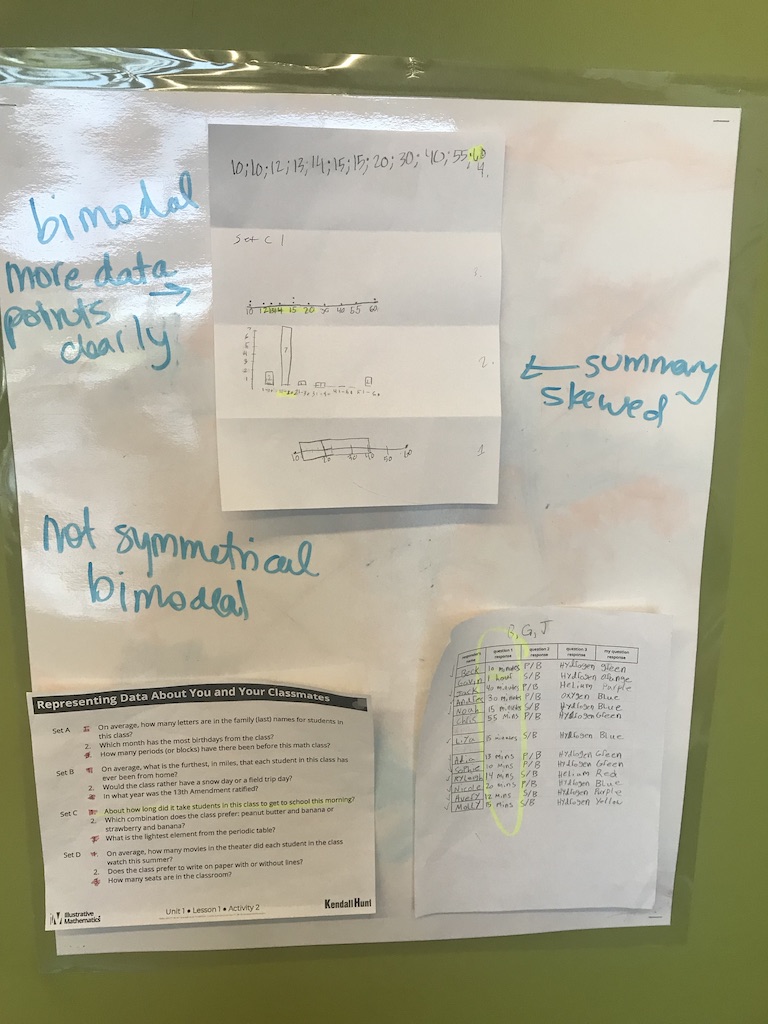 10; 10; 12; 13; 14; 15; 15; 20; 30; 40; 55; 60
4.
bimodal
more data
points →
clearly
Set C 1
3.
10 12 13 14 15 20 30 40 55 60
7
6
5
4
3
2
1
7
2.
← summary
skewed
10 20 30 40 50 60
1
not symmetrical
bimodal
B, G, J
respondent's name question 1 response question 2 response question 3 response my question response
Beck 10 minutes P/B Hydrogen green
Gavin 1 hour S/B Hydrogen orange
Jack 40 minutes P/B Helium Purple
30 minutes P/B oxygen Blue
Noah 15 minutes S/B Hydrogen Blue
55 mins P/B Hydrogen Green
Liza 15 minutes S/B Hydrogen Blue
13 mins P/B Hydrogen Green
Sophie 10 mins P/B Hydrogen Green
14 mins S/B Helium Red
Nicole 20 mins P/B Hydrogen Blue
Avery 12 mins S/B Hydrogen Purple
Molly 15 mins S/B Hydrogen Yellow
Representing Data About You and Your Classmates
Set A 1. On average, how many letters are in the family (last) names for students in
this class?
2. Which month has the most birthdays from the class?
3. How many periods (or blocks) have there been before this math class?
Set B 1. On average, what is the furthest, in miles, that each student in this class has
ever been from home?
2. Would the class rather have a snow day or a field trip day?
3. In what year was the 13th Amendment ratified?
Set C 1. About how long did it take students in this class to get to school this morning?
2. Which combination does the class prefer: peanut butter and banana or
strawberry and banana?
3. What is the lightest element from the periodic table?
Set D 1. On average, how many movies in the theater did each student in the class
watch this summer?
2. Does the class prefer to write on paper with or without lines?
3. How many seats are in the classroom?
Illustrative
Mathematics
Unit 1 • Lesson 1 • Activity 2
Kendall Hunt